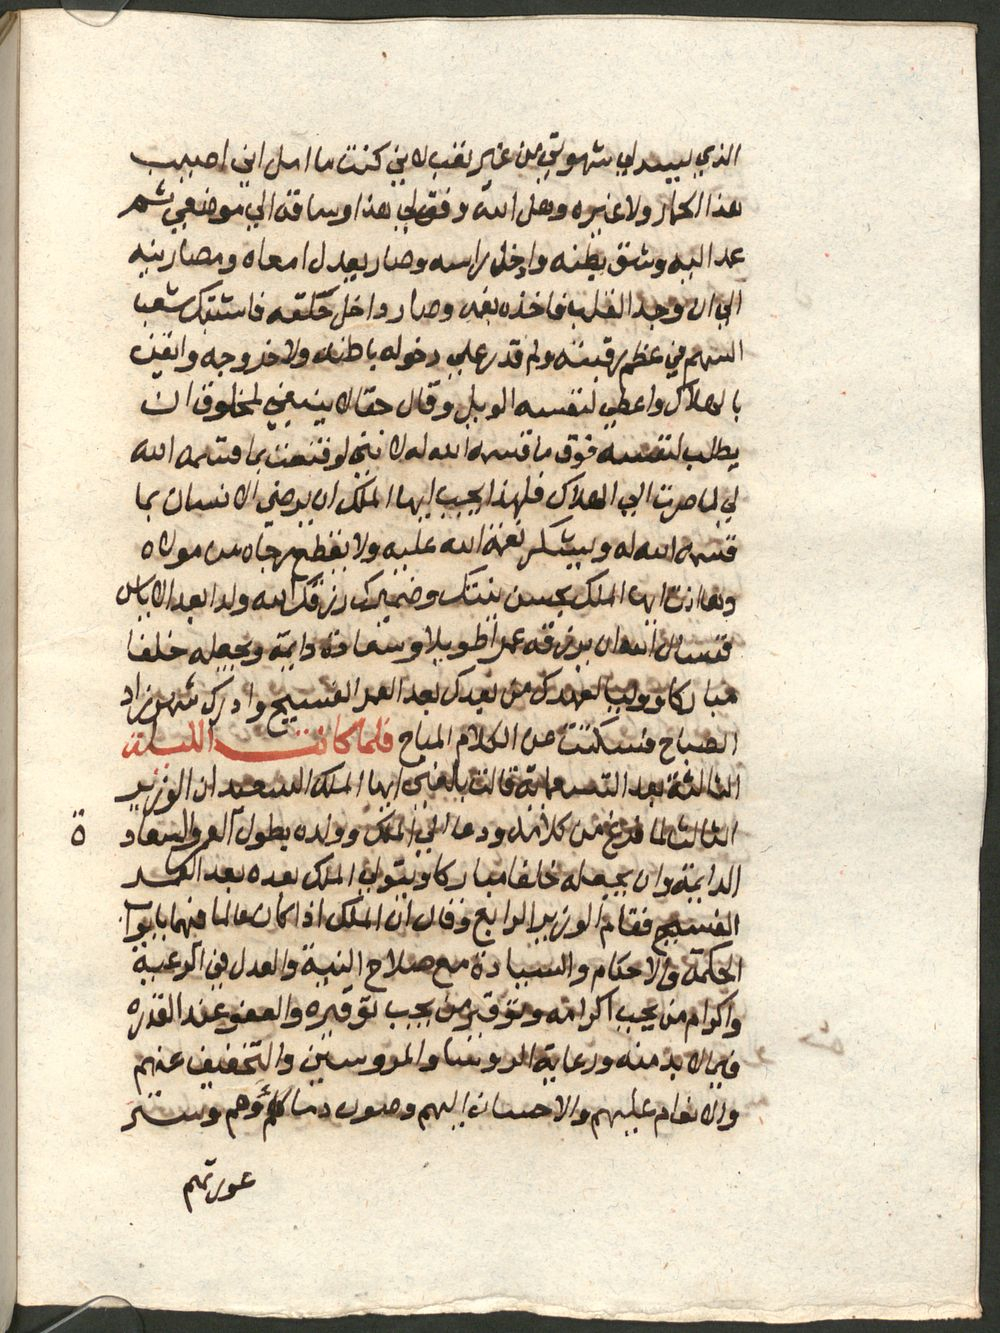 الذي ييسر لي شهوتي من غير تعب لاني كنت ما امل اني اصيب
هذا الحمار ولا غيره ولعل الله وفق لي هذا وساقه الي موضعي ثم
عدا اليه وشق بطنه وادخل راسه وصار يعدل امعاه ومصارينه
الي ان وجد القلب فاخذه بفمه وصار داخل حلقه فاشتبك شعب
السهم في عظم رقبته ولم قدر علي دخوله باطنه ولا خروجه وايقن
بالهلاك واعطي لنفسه الويل وقال حقا لا ينبغي لمخلوق ان
يطلب لنفسه فوق ما قسمه الله له لانني لو قنعت بما قسمه الله
لي لما صرت الي الهلاك فلهذا يجب ايها الملك ان يرضي الانسان بما
قسمه الله له ويشكر نعمة الله عليه ولا يقطع رجاه من مولاه
وها انت ايها الملك بحسن نيتك وضميرك رزقك الله ولدا بعد الاياس
فنسال الله ان يرزقه عمرا طويلا وسعادة دايمة ويجعله خلفا
مباركا ووليا لعهدك من بعدك بعد العمر الفسيح وادرك شهرزاد
الصباح فسكتت عن الكلام المباح فلما كانت الليلة
الثالثة بعد التسعماية قالت بلغني ايها الملك السعيد ان الوزير
الثالث لما فرغ من كلامه ودعا الي الملك وولده بطول العمر والسعاد
ة
الدايمة وان يجعله خلفا مباركا ويتولي الملك بعده بعد العمر
الفسيح فقام الوزير الرابع وقال ان الملك اذا كان عالما فهما بابواب
الحكمة والاحكام والسيادة مع صلاح النية والعدل في الرعية
واكرام من يجب اكرامه وتوقير من يجب توقيره والعفو عند القدره
فيما لابد منه ورعاية الروسا والمروسين والتخفيف عنهم
والانعام عليهم والاحسان اليهم وصون دماؤهم وستر
عورتهم